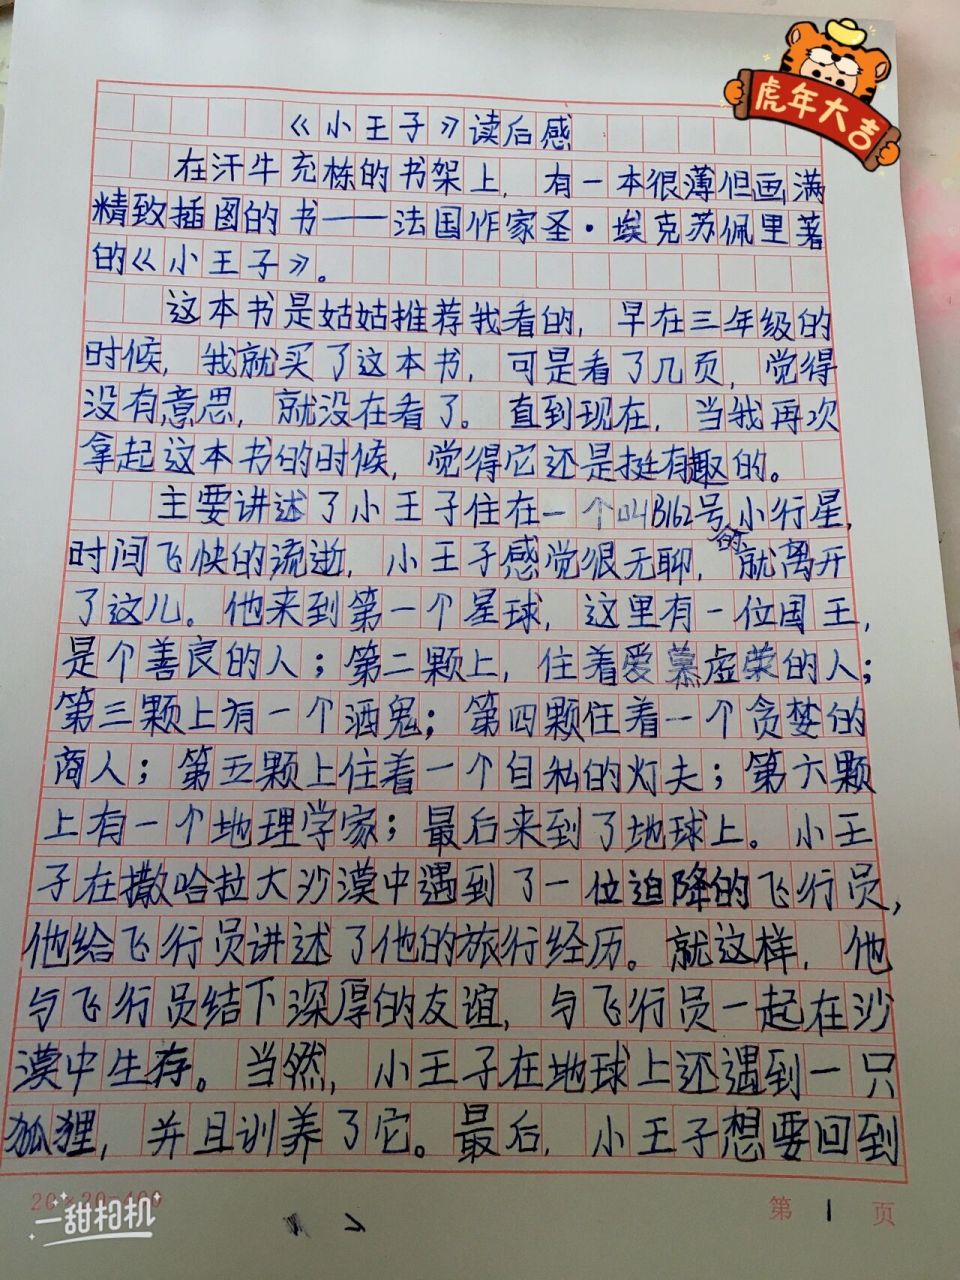 虎年大吉
《小王子》读后感
在汗牛充栋的书架上，有一本很薄但画满
精致插图的书——法国作家圣·埃克苏佩里著
的《小王子》。
这本书是姑姑推荐我看的，早在三年级的
时候，我就买了这本书，可是看了几页，觉得
没有意思，就没在看了。直到现在，当我再次
拿起这本书的时候，觉得它还是挺有趣的。
主要讲述了小王子住在一个叫B162号的小行星，
时间飞快的流逝，小王子感觉很无聊，就离开
了这儿。他来到第一个星球，这里有一位国王，
是个善良的人；第二颗上，住着爱慕虚荣的人；
第三颗上有一个酒鬼；第四颗住着一个贪婪的
商人；第五颗上住着一个自私的灯夫；第六颗
上有一个地理学家；最后来到了地球上。小王
子在撒哈拉大沙漠中遇到了一位迫降的飞行员，
他给飞行员讲述了他的旅行经历。就这样，他
与飞行员结下深厚的友谊，与飞行员一起在沙
漠中生存。当然，小王子在地球上还遇到一只
狐狸，并且训养了它。最后，小王子想要回到
20×20=400
第1页
一甜相机